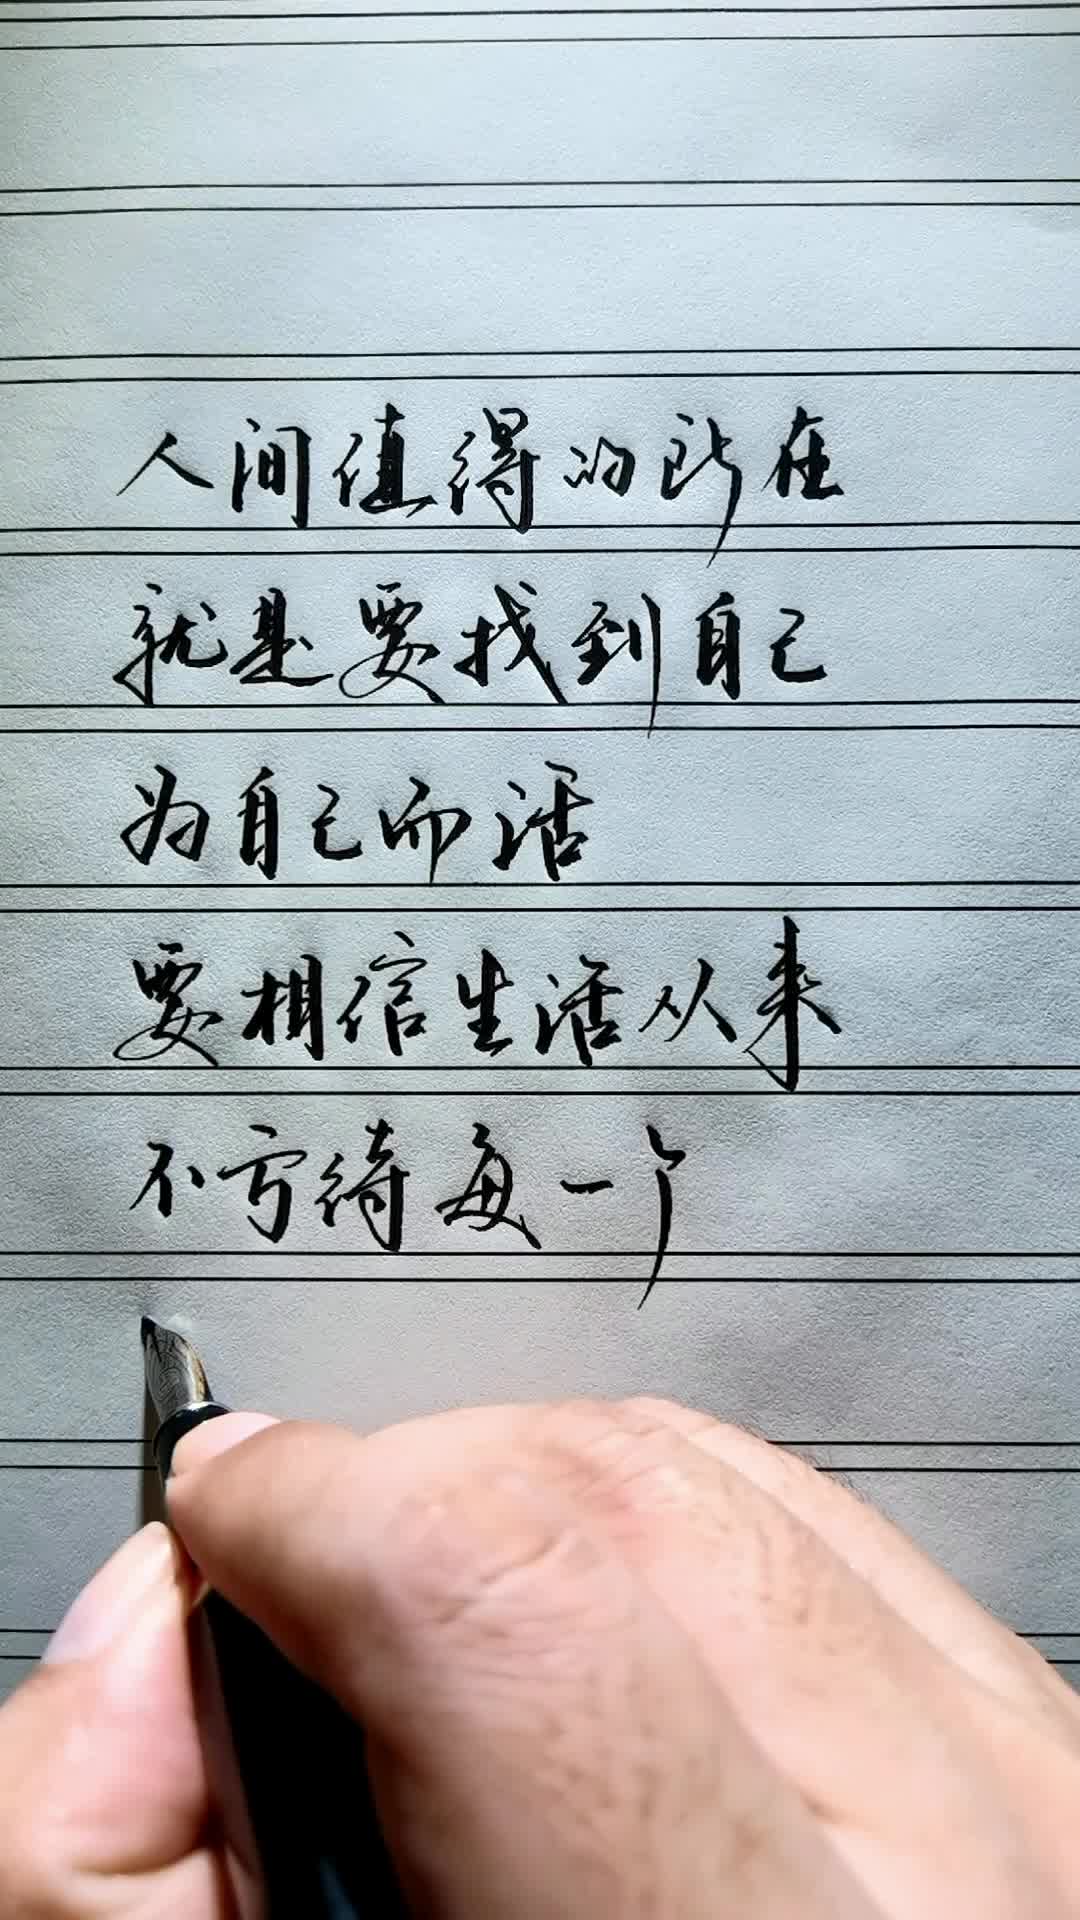 人间值得的所在
就是要找到自己
为自己而活
要相信生活从来
不亏待每一个